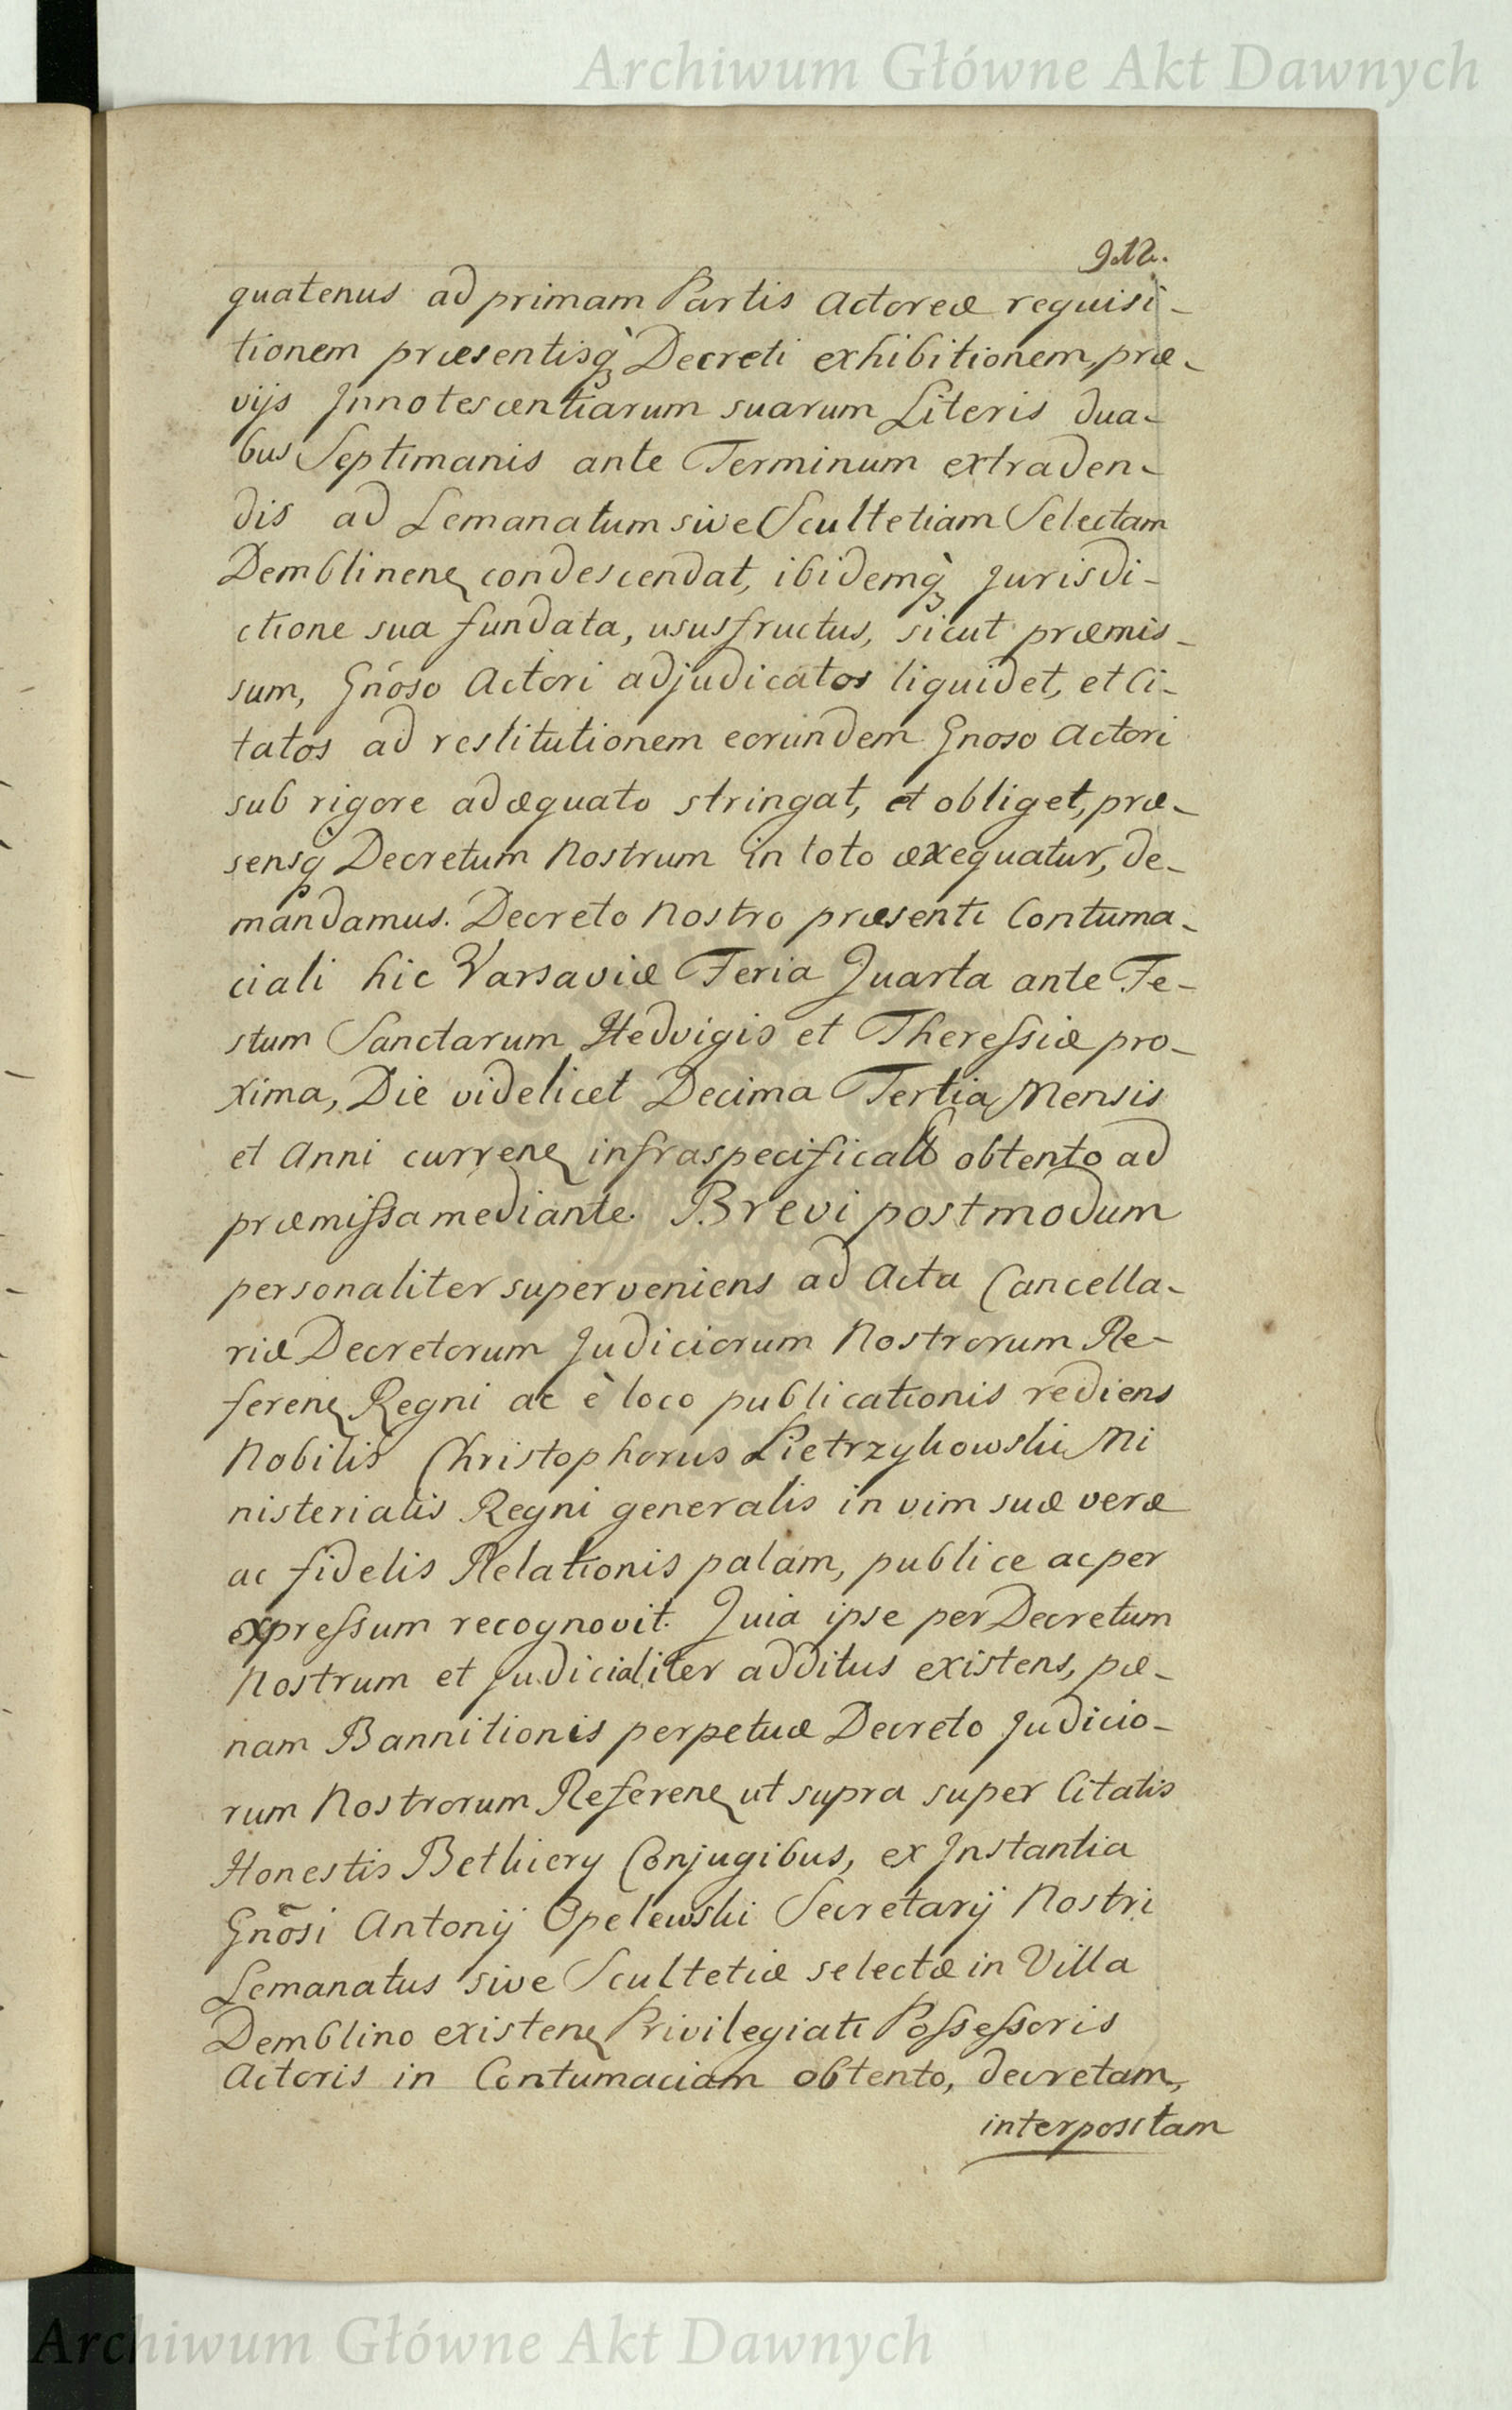 Archiwum Główne Akt Dawnych
912.
quatenus ad primam Partis Actoreæ requisi-
tionem præsentisq̀ Decreti exhibitionem, præ-
vijs Innotescentiarum suarum Literis dua-
bus Septimanis ante Terminum extraden-
dis ad Lemanatum sive Scultetiam Selectam
Demblinenę condescendat, ibidemq̀ Jurisdi-
ctione sua fundata, ususfructus, sicut præmis-
sum, Gńoso Actori adjudicatos liquidet, et Ci-
tatos ad restitutionem eorundem Gnoso Actori
sub rigore adæquato stringat, et obliget, præ-
sensq Decretum Nostrum in toto exequatur, de-
mandamus. Decreto Nostro præsenti Contuma-
ciali hic Varsaviæ Feria Quarta ante Fe-
stum Sanctarum Hedvigis et Theressiæ pro-
xima, Die videlicet Decima Tertia Mensis
et Anni currenę infraspecificatt obtento ad
præmissa mediante. Brevi postmodum
personaliter superveniens ad Acta Cancella-
riæ Decretorum Judiciorum Nostrorum Re-
ferenę Regni ac è loco publicationis rediens
Nobilis Christophorus Pietrzykowski Mi
nisterialis Regni generalis in vim suæ veræ
ac fidelis Relationis palam, publice ac per
expressum recognovit. Quia ipse per Decretum
Nostrum et Judicialiter additus existens, pæ-
nam Bannitionis perpetuæ Decreto Judicio-
rum Nostrorum Referenę ut supra super Citatis
Honestis Bethiery Conjugibus, ex Instantia
Gnõsi Antonij Opelewski Secretarij Nostri
Lemanatus sive Scultetiæ selectæ in Villa
Demblino existenę Privilegiati Possessoris
Actoris in Contumaciam obtento, decretam,
interpositam
Archiwum Główne Akt Dawnych